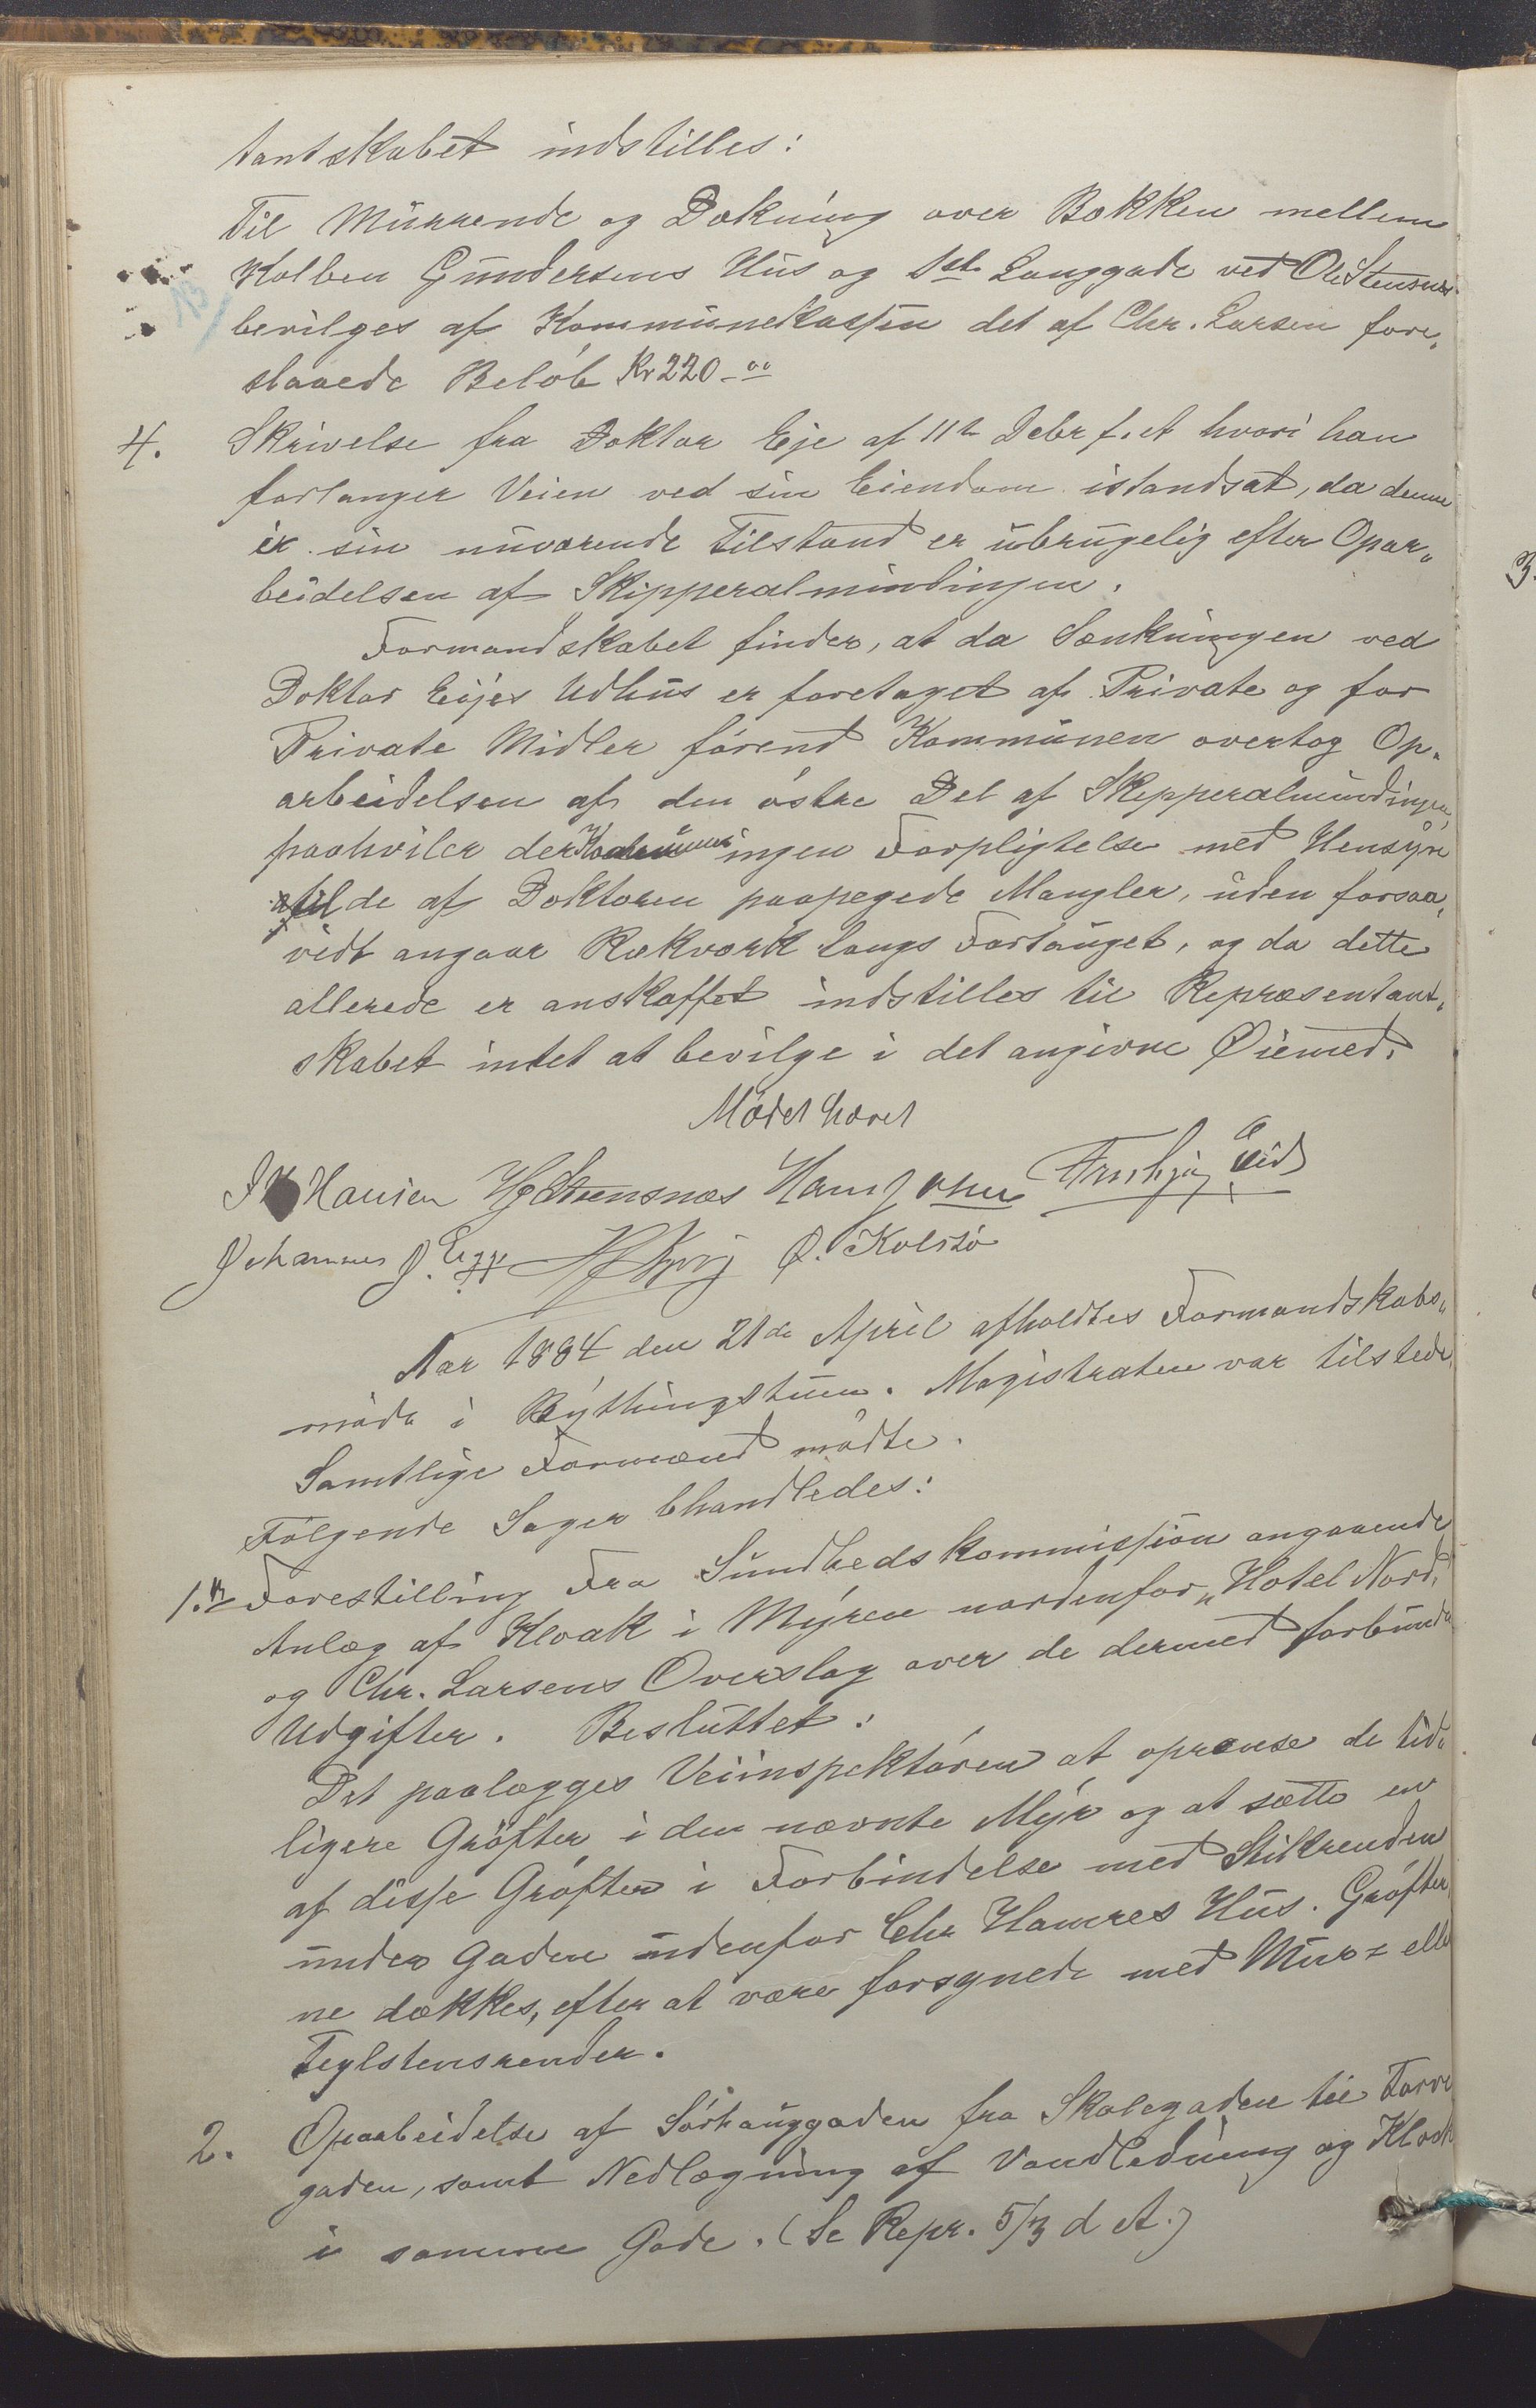 tantskabet indstilles:
Til Murrende og Dækning over Bækken mellem
Kolben Gundersens Hus og 1ste Langgade ved Ole Stensnes
bevilges af Kommunekassen det af Chr. Larsen fore,
slaaede Beløb Kr 220-00
4. Skrivelse fra Doktor Eje af 11te Debr f. A hvori han
forlanger Veien ved sin Eiendom istandsat, da denne
i sin nuværende Tilstand er ubrugelig efter Opar,
beidelsen af Skipperalmindingen.
Formandskabet finder, at da Sænkningen ved
Doktor Eijes Udhus er foretaget af Private og for
Private Midler førend Kommunen overtog Op,
arbeidelsen af den østre Del af Skipperalmindingen,
paahviler der Kommunen ingen Forpligtelse med Hensyn
til de af Doktoren paapegede Mangler, uden forsaa,
vidt angaar Rækværk langs Fortauget, og da dette
allerede er anskaffet indstilles til Repræsentant,
skabet intet at bevilge i det angivne Øiemed.
Mødet hævet
Hansen H Stensnæs Eid
Johannes J. Egge Ø. Kolstø
Aar 1884 den 21de April afholdtes Formandskabs,
møde i Bythingstuen. Magistraten var tilstede
Samtlige Formænd mødte.
Følgende Sager bhandledes:
1. Forestilling Fra Sundhedskommission angaaende
Anlæg af Kloak i Myren nordenfor „Hotel Nord"
og Chr. Larsens Overslag over de dermed forbundne
Udgifter. Besluttet:
Det paalægges Veiinspektøren at oprense de tid,
ligere Grøfter i den nævnte Myr og at sætte en
af disse Grøfter i Forbindelse med Stikrenden
under Gaden udenfor Chr Hamres Hus. Grøfter,
ne dækkes, efter at være forsynede med Mur= eller
Teglstensrender.
2. Oparbeidelse af Sørhauggaden fra Skolegaden til Torv
gaden, samt Nedlægning af Vandledning og Kloak
i samme Gade. (Se Repr. 5/3 d A.)